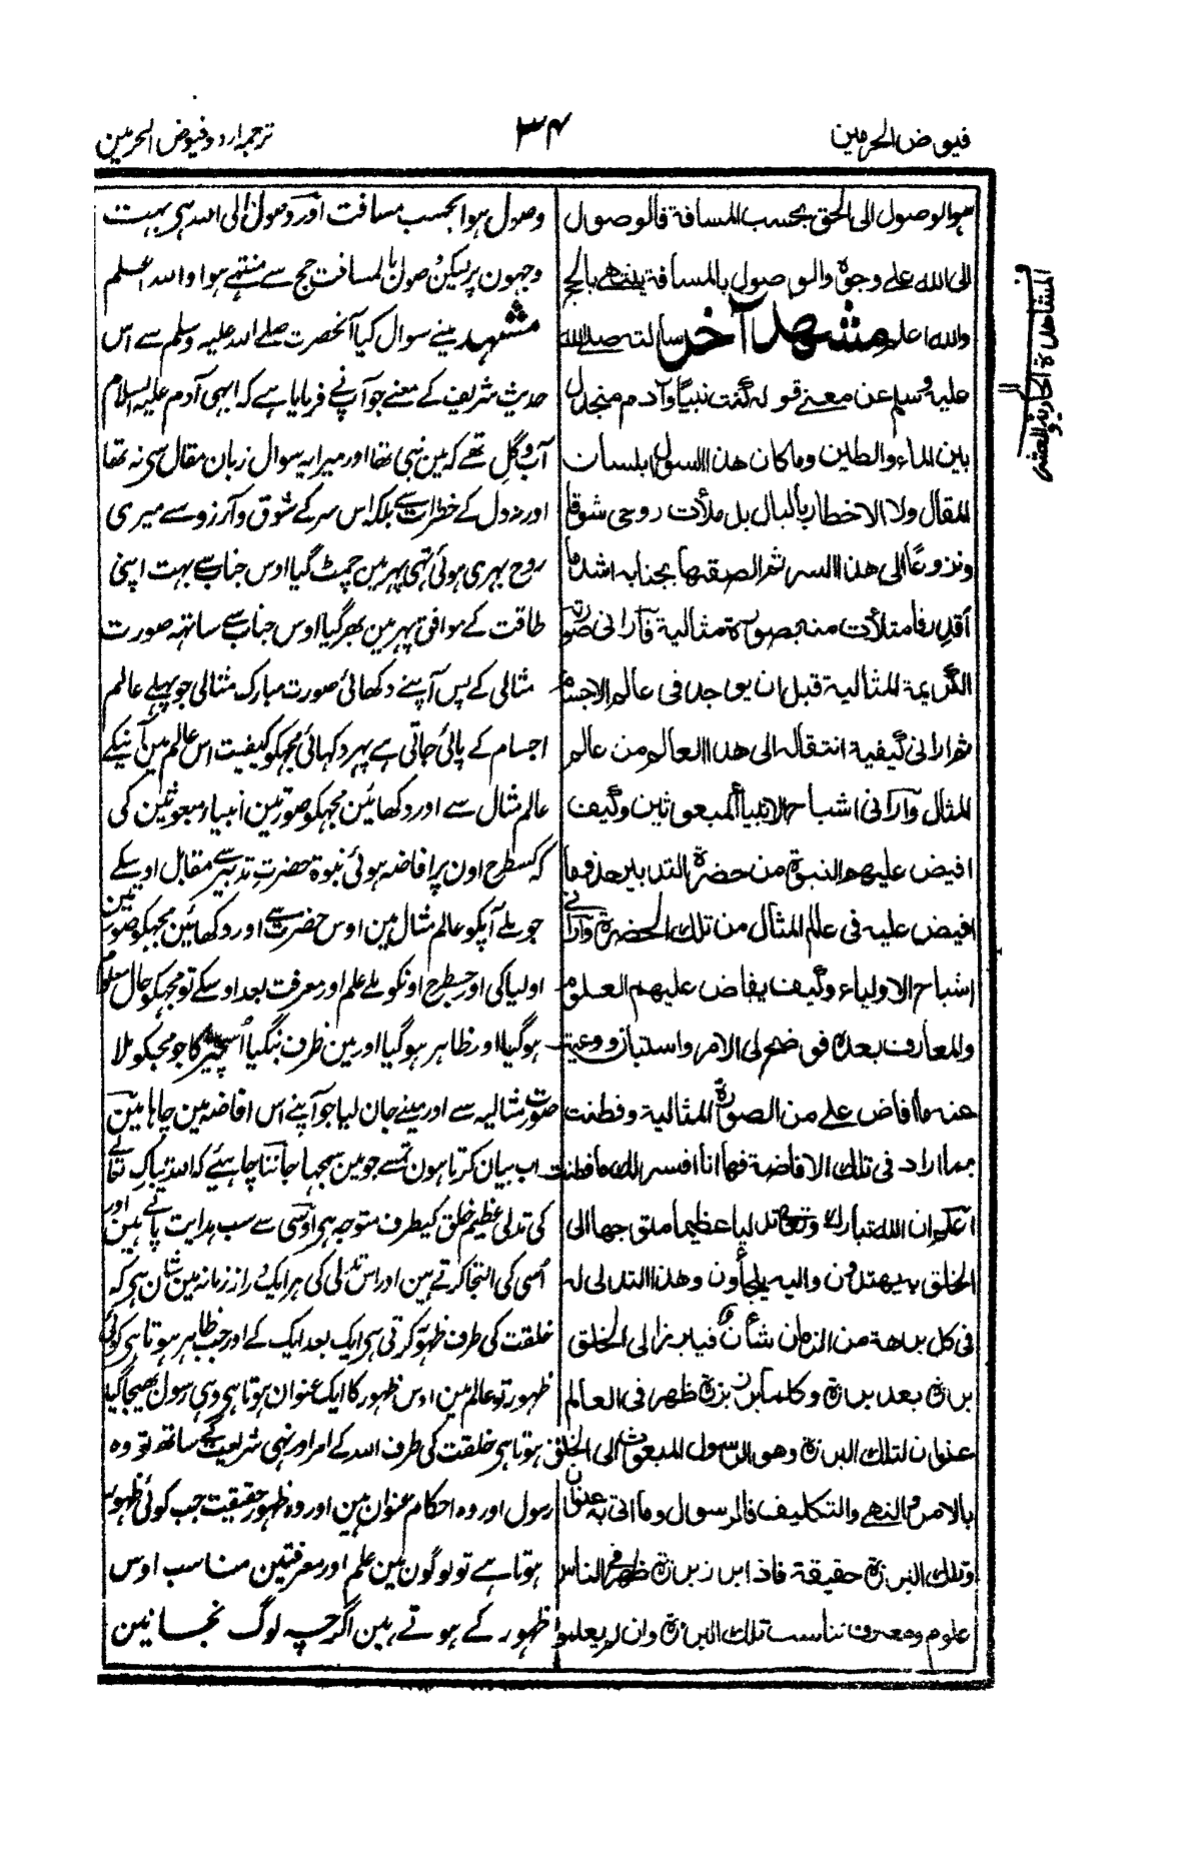 فیوض الحرمین
۳۴
ترجمہ اردو فیوض الحرمین
ھو الوصول الی الحق بحسب المسافة فالوصول
الی الله علی وجوہ والوصول بالمسافة ینتھے بالحج
والله اعلم مشھد آخر سالتہ صلے الله
علیہ وسلم عن معنے قولہ کنت نبیًا وآدم منجدل
بین الماء والطین وماکان ھذا السوال بلسان
المقال ولا الاخطار بالبال بل ملأت روحی شوقا
ونزوعًا الی ھذا السر ثم الصقھا بجنابہ اشد ما
أقدر فامتلأت منہ بصورة مثالیة فأرانی صورتہ
الکریمة المثالیة قبل ان یوجد فی عالم الاجسام
ثم ارانی کیفیة انتقالہ الی ھذا العالم من عالم
المثال وأرانی اشباح الانبیاء المبعوثین وکیف
افیض علیھم النبوة من حضرة التدبیر حذو ما
افیض علیہ فی عالم المثال من تلك الحضرة وأرانے
اشباح الاولیاء وکیف یفاض علیھم العلوم
والمعارف بعدہ فوضح لی الامر واستبان ووعیت
عنہ ما افاض علی من الصورة المثالیة وفطنت
بما اراد فی تلك الافاضة فھا انا افسر لك ما فطنت
اعلم ان الله تبارك وتعالی تدلیا عظیما متوجھا الی
الخلق بہ یھتدون والیہ یلجأون وھذا التدلی لہ
فی کل برھة من الزمان شأن فیبرز الی الخلق
برزة بعد برزة وکلما برز برزة ظھر فی العالم
عنوان لتلك البرزة وھو الرسول المبعوث الی الخلق
بالامر والنھے والتکلیف فالرسول وما اتی بہ عنوان
وتلك البرزة حقیقة فاذا برز برزة ظھر فی الناس
علوم ومعرفة تناسب تلك البرزة وان لم یعلموا
وصول ہوا بحسب مسافت اور وصول الی اللہ ہی بہت
وجہون پر لیکن وصول بالمسافت حج سے منتہے ہوا واللہ اعلم
مشہد مینے سوال کیا آنحضرت صلے اللہ علیہ وسلم سے اس
حدیث شریف کے معنے جو آپ نے فرمایا ہے کہ ابہی آدم علیہ السلام
آب وگل تھے کہ مین نبی تھا اور میرا یہ سوال زبان مقال سے نہ تھا
اور نہ دل کے خطرات سے بلکہ اس سر کے شوق وآرزو سے میری
روح بہری ہوئی تہی پہر مین چمٹ گیا اوس جناب سے بہت اپنی
طاقت کے موافق پہر مین بھر گیا اوس جناب سے ساتہہ صورت
مثالی کے پس آپنے دکھائی صورت مبارک مثالی جو پہلے عالم
اجسام کے پائی جاتی ہے پہر دکہائی مجہکو کیفیت اس عالم مین آنیکے
عالم مثال سے اور دکھائین مجہکو صورتین انبیاء مبعوثین کی
کہ کسطرح اون پر افاضہ ہوئی نبوة حضرت تدبیر سے مقابل اوسکے
جو ملے آپکو عالم مثال مین اوس حضرت سے اور دکھائین مجہکو صورتین
اولیا کی اور جسطرح اونکو ملے علم اور معرفت بعد اوسکے تو مجہکو حال معلوم
ہوگیا اور ظاہر ہوگیا اور مین ظرف بنگیا اس چیز کا جو مجہکو ملا
صورت مثالیہ سے اور مینے جان لیا جو آپنے اس افاضہ مین چاہا مین
اب بیان کرتا ہون تمسے جو مین سمجہا جاننا چاہئے کہ اللہ تبارک تعالے
کی تدلی عظیم خلق کیطرف متوجہ ہے اوسی سے سب ہدایت پاتے ہین اور
اُسی کی التجا کرتے ہین اور اس تدلی کی ہر ایک زمانہ مین شان ہی کہ
خلقت کی طرف ظہور کرتی ہی ایک بعد ایک کے اور جب ظاہر ہوتا ہی کوئی
ظہور تو عالم مین اوس ظہور کا ایک عنوان ہوتا ہی وہی رسول بھیجا گیا
ہوتا ہی خلقت کی طرف اللہ کے امر اور نہی شریعت کے ساتھ تو وہ
رسول اور وہ احکام عنوان ہین اور وہ ظہور حقیقت جب کوئی ظہور
ہوتا ہے تو لوگون مین علم اور معرفتین مناسب اوس
ظہور کے ہوتے ہین اگرچہ لوگ نجانین